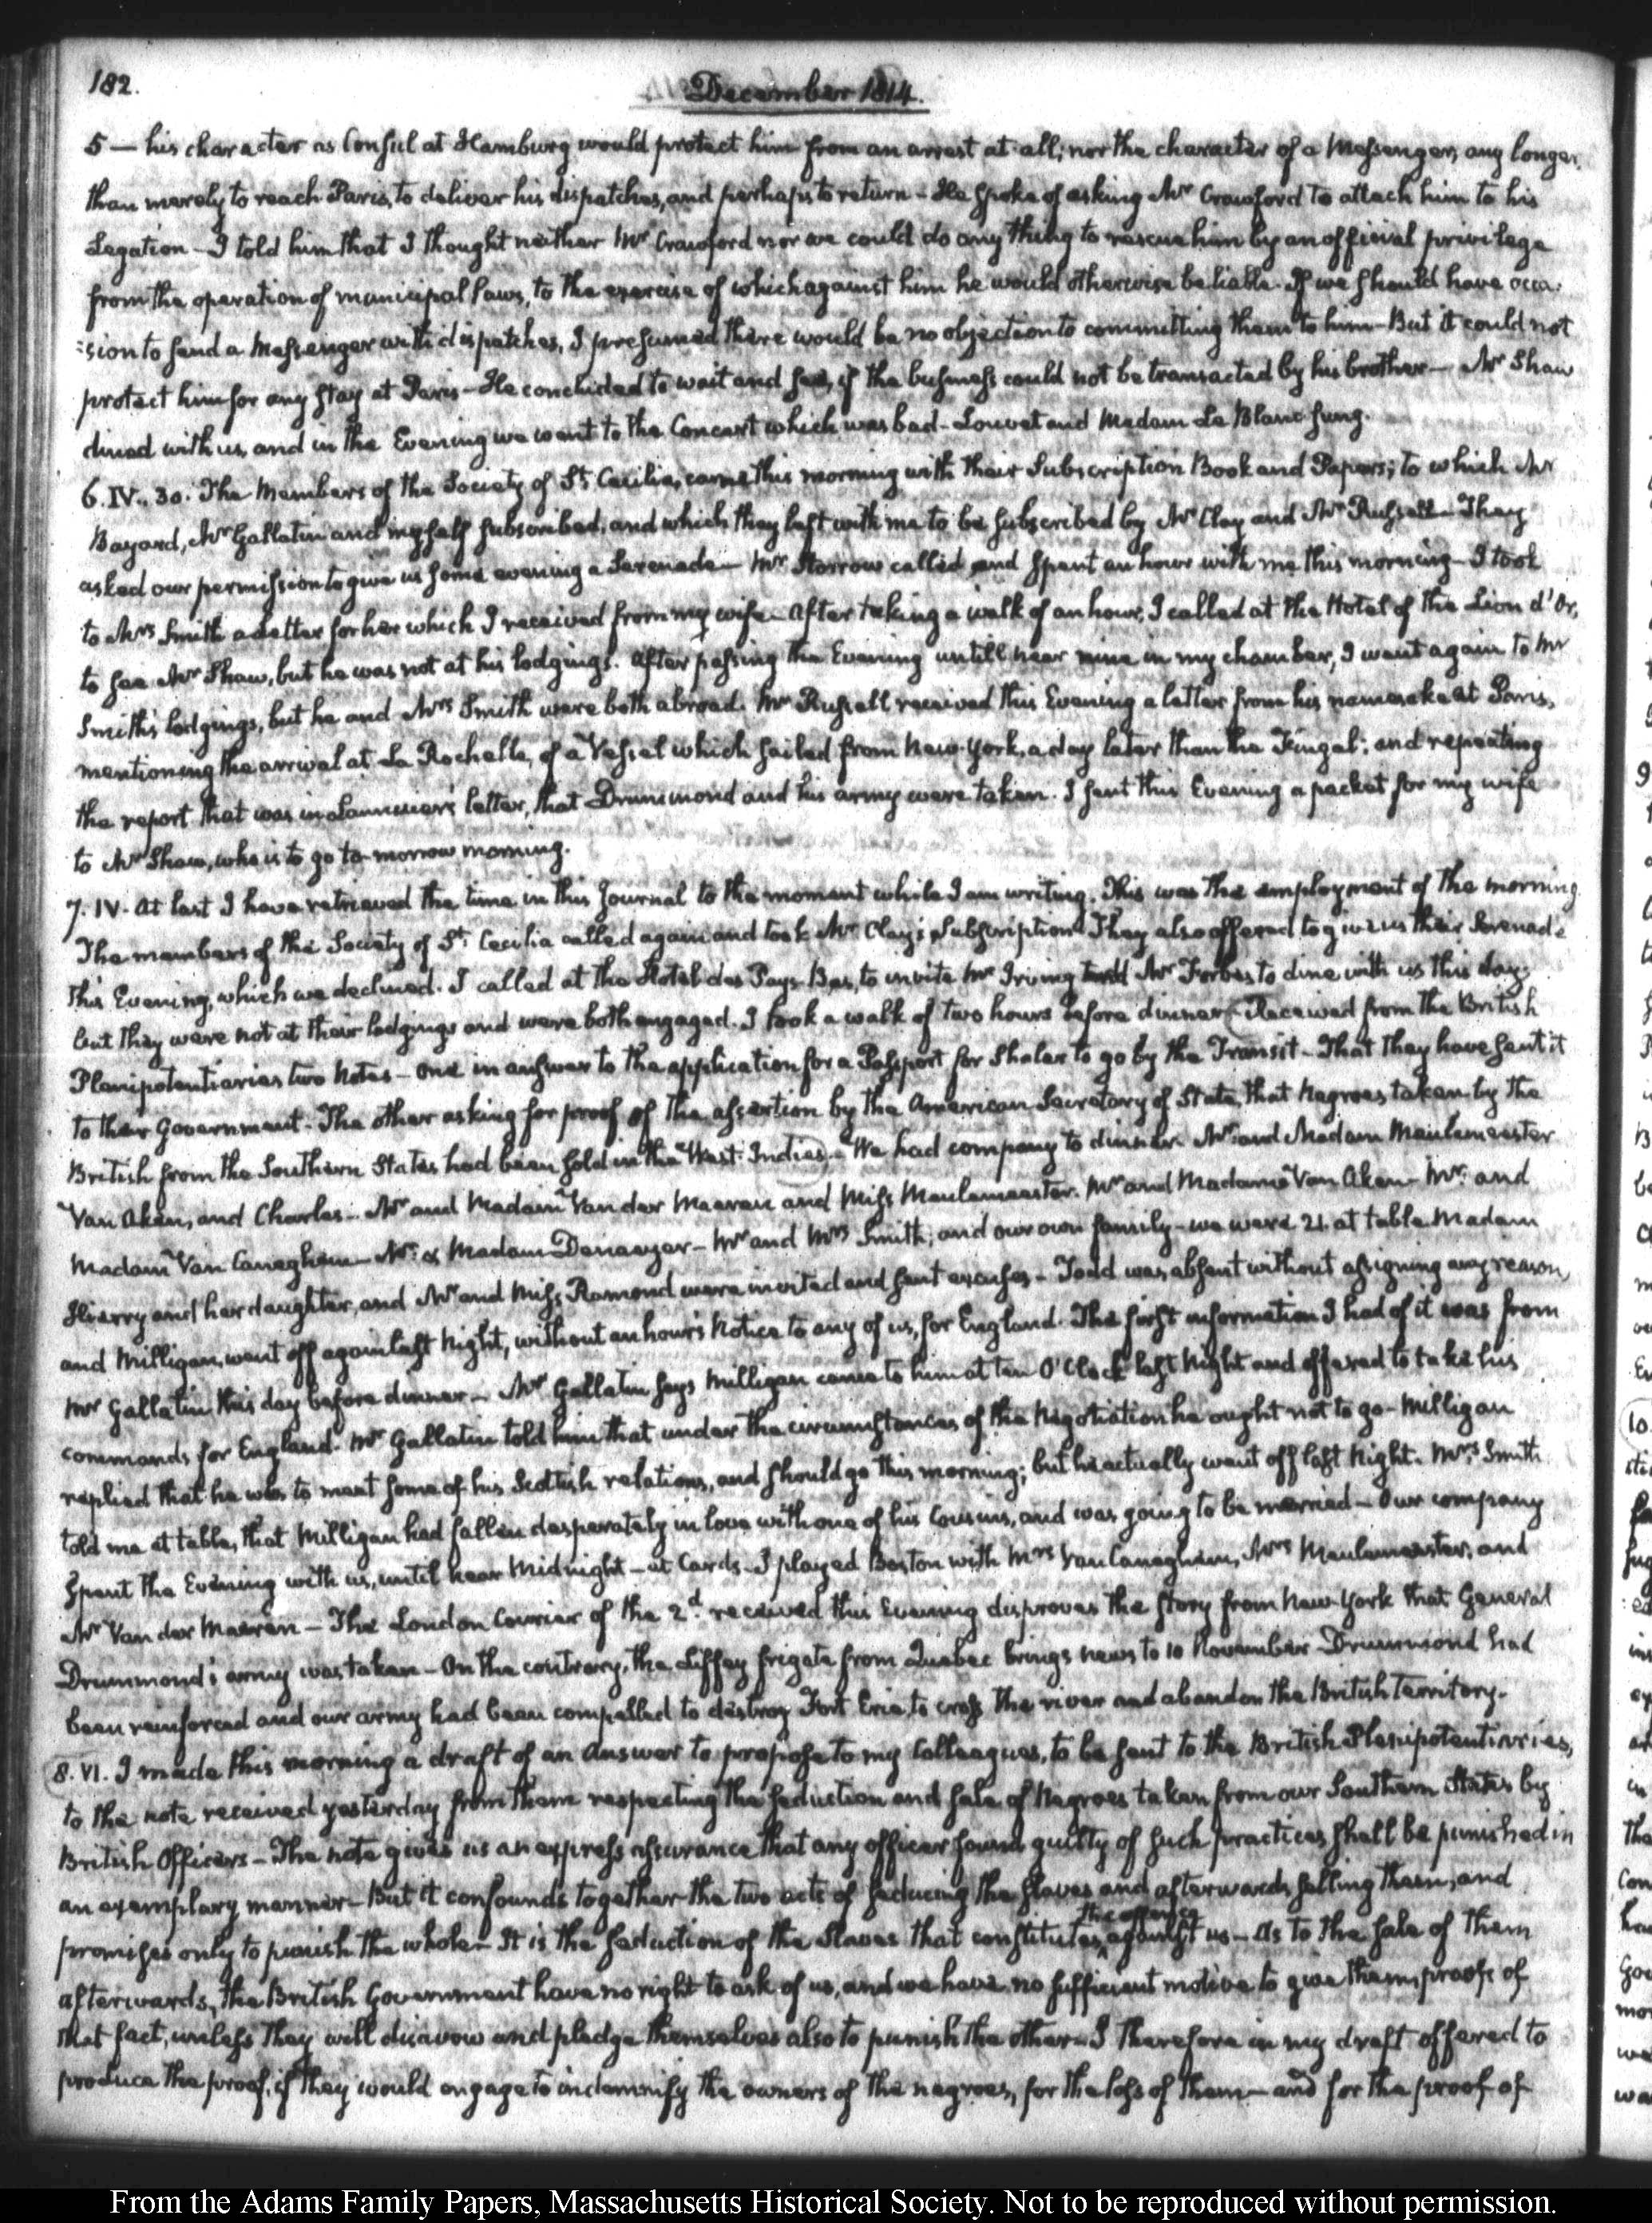 182.
December 1814.
5 — his character as Consul at Hamburg would protect him from an arrest at all; nor the character of a Messenger, any longer
than merely to reach Paris, to deliver his dispatches, and perhaps to return – He spoke of asking Mr Crawford to attach him to his
Legation – I told him that I thought neither Mr Crawford nor we could do any thing to rescue him by an official privilege
from the operation of municipal laws, to the exercise of which against him he would otherwise be liable. If we should have occa-
:sion to send a Messenger with dispatches, I presumed there would be no objection to committing them to him – But it could not
protect him for any stay at Paris – He concluded to wait and see, if the business could not be transacted by his brother – Mr Shaw
dined with us, and in the Evening we went to the Concert which was bad – Louvet and Madam Le Blanc sung.
6. IV.. 30. The Members of the Society of St. Cecilia, came this morning with their Subscription Book and Papers; to which Mr
Bayard, Mr Gallatin and myself subscribed, and which they left with me to be subscribed by Mr Clay and Mr Russell – They
asked our permission to give us some evening a Serenade – Mr Storrow called and spent an hour with me this morning – I took
to Mrs Smith a letter for her which I received from my wife – After taking a walk of an hour, I called at the Hotel of the Lion d'Or,
to see Mr Shaw, but he was not at his lodgings. After passing the Evening untill near nine in my chamber, I went again to Mr
Smith's lodgings, but he and Mrs Smith were both abroad. Mr Russell received this Evening a letter from his namesake at Paris,
mentioning the arrival at La Rochelle, of a Vessel which sailed from New-York, a day later than the Fingal: and repeating
the report that was in letter, that Drummond and his army were taken. I sent this Evening a packet for my wife
to Mr Shaw, who is to go to-morrow morning.
7. IV. At last I have retrieved the time in this Journal to the moment while I am writing. This was the employment of the morning.
The members of the Society of St. Cecilia called again and took Mr Clay's Subscription. They also offered to give us their Serenade
this Evening, which we declined. I called at the Hotel des Pays-Bas, to invite Mr Irving and Mr Forbes to dine with us this day;
but they were not at their lodgings and were both engaged. I took a walk of two hours before dinner – Received from the British
Plenipotentiaries two Notes – One in answer to the application for a Passport for Shaler to go by the Transit – That they have sent it
to their Government. The other asking for proof of the assertion by the American Secretary of State, that Negroes taken by the
British from the Southern States had been sold in the West-Indies. – We had company to dinner. Mr and Madam Meulemeester
Van Aken, and Charles – Mr and Madam Van der Maeren and Miss Meulemeester. Mr and Madame Van Aken – Mr. and
Madam Van Caneghem – Mr. & Madam Denaeyer – Mr and Mrs Smith, and our own family – we were 21 at table. Madam
Hierry and her daughter, and Mr and Miss Ramond were invited and sent excuses – Todd was absent without assigning any reason,
and Milligan, went off again last Night, without an hour's Notice to any of us, for England. The first information I had of it was from
Mr Gallatin this day before dinner – Mr Gallatin says Milligan came to him at ten O'Clock last Night and offered to take his
commands for England. Mr Gallatin told him that under the circumstances of the Negotiation he ought not to go – Milligan
replied that he was to meet some of his Scottish relations, and should go this morning; but he actually went off last Night. Mrs Smith
told me at table, that Milligan had fallen desperately in love with one of his Cousins, and was going to be married – Our company
spent the Evening with us, until near Midnight – at Cards – I played Boston with Mrs Van Caneghem, Mrs Meulemeester, and
Mr Van der Maeren – The London Courier of the 2d. received this Evening disproves the story from New-York that General
Drummond's army was taken – On the contrary, the Liffey frigate from Quebec brings news to 10 November – Drummond had
been reinforced and our army had been compelled to destroy Fort Erie, to cross the river and abandon the British Territory.
8. VI. I made this morning a draft of an Answer to propose to my Colleagues, to be sent to the British Plenipotentiaries,
to the note received yesterday from them respecting the seduction and sale of Negroes taken from our Southern States by
British Officers – The note gives us an express assurance that any officer found guilty of such practices shall be punished in
an exemplary manner – But it confounds together the two acts of seducing the slaves and afterwards selling them, and
promises only to punish the whole – It is the seduction of the Slaves that constitutes the offence against us – As to the sale of them
afterwards, the British Government have no right to ask of us, and we have no sufficient motive to give them, proofs of
that fact, unless they will disavow and pledge themselves also to punish the other – I therefore in my draft offered to
produce the proof, if they would engage to indemnify the owners of the negroes, for the loss of them – and for the proof of
From the Adams Family Papers, Massachusetts Historical Society. Not to be reproduced without permission.